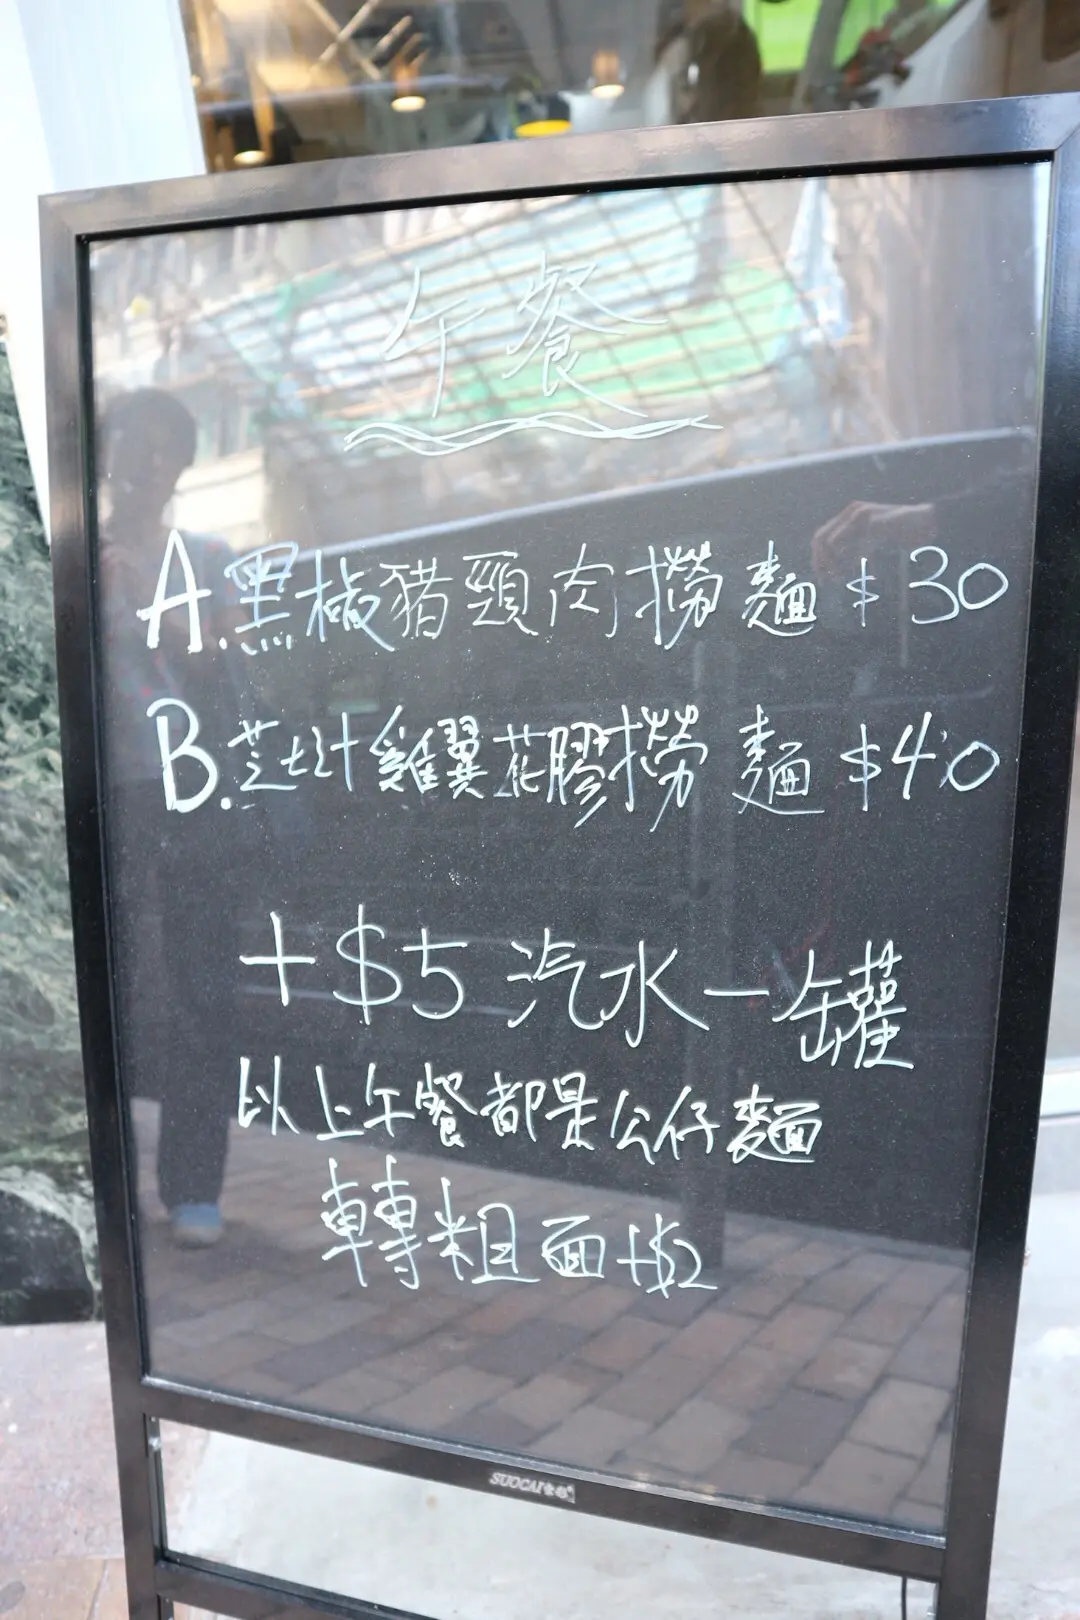 午餐
A.黑椒豬頸肉撈麵 $30
B.芝士汁雞翼花膠撈麵 $40
+$5 汽水一罐
以上午餐都是公仔麵
轉粗面+$2
SUOCAI